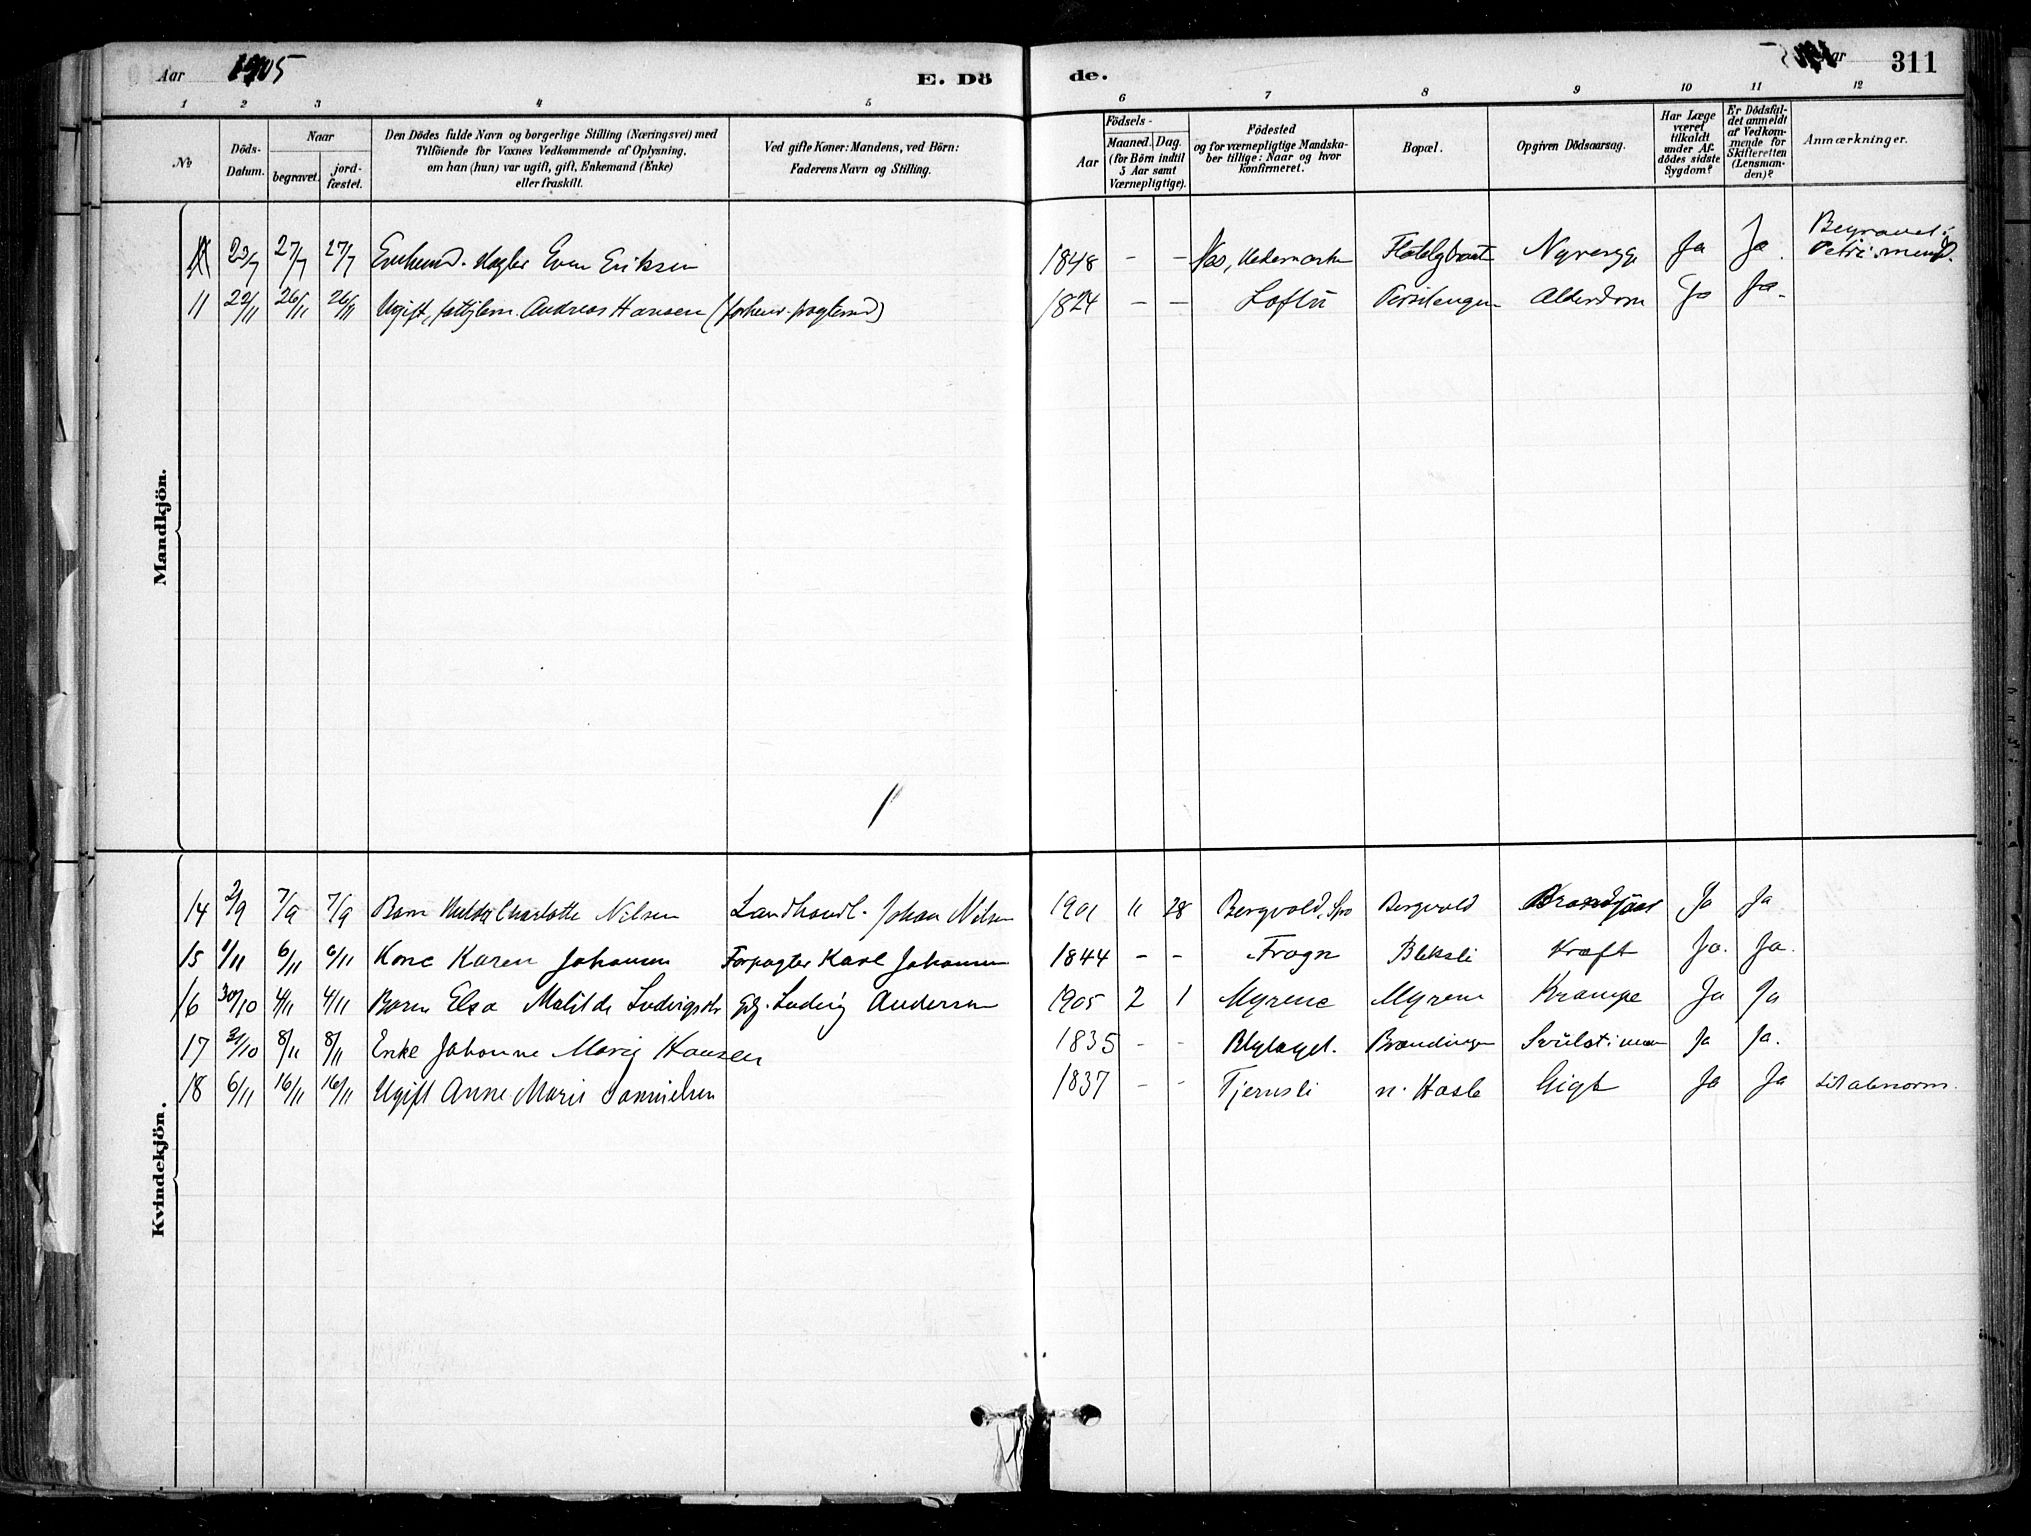 Aar 1905 E. Dö
de. Aar 311
1 2 3 4 5
6 7 8 9 10 11 12
№ Döds-Datum. Naar begravet. jord-fæstet. Den Dödes fulde Navn og borgerlige Stilling (Næringsvei) med Tilföiende for Voxnes Vedkommende af Oplysning, om han (hun) var ugift, gift, Enkemand (Enke) eller fraskilt. Ved gifte Koner: Mandens, ved Börn: Faderens Navn og Stilling.
Födsels- Aar Maaned. Dag. (for Börn indtil 5 Aar samt Værnepligtige). Födested og for værnepligtige Mandska-ber tillige: Naar og hvor konfirmeret. Bopæl. Opgiven Dödsaarsag. Har Læge været tilkaldt under Af-dödes sidste Sygdom? Er Dödsfal-det anmeldt af Vedkom-mende for Skifteretten (Lensman-den)? Anmærkninger.
Mandkjön.
23/7 27/7 27/7 Even Eriksen 1848 - - Nes, Hedemarken Ja Ja Begravet i
11 22/11 26/11 26/11 Ugift, Andreas Hansen 1824 - - Loftu Alderdom Ja Ja.
Kvindekjön.
14 2/9 7/9 7/9 Barn Hulda Charlotte Nilsen Landhandl. Johan Nilsen 1901 11 28 Bergvold, Bergvold Ja Ja
15 1/11 6/11 6/11 Kone Karen Johansen Forpagter Karl Johansen 1844 - - Frogn Bleksli Kræft Ja. Ja.
16 30/10 4/11 4/11 Barn Elsa Matilde Ludvigsdtr Ludvig Andersen 1905 2 1 Myrene Myrene Krampe Ja Ja
17 31/10 8/11 8/11 Enke Johanne Marie Hansen 1835 - - Blylaget. Brændingen Svulst i Ja Ja.
18 6/11 16/11 16/11 Ugift Anne Marie Samuelsen 1837 - - Tjernsli n. Hasle Gigt Ja Ja Lidt abnorm.